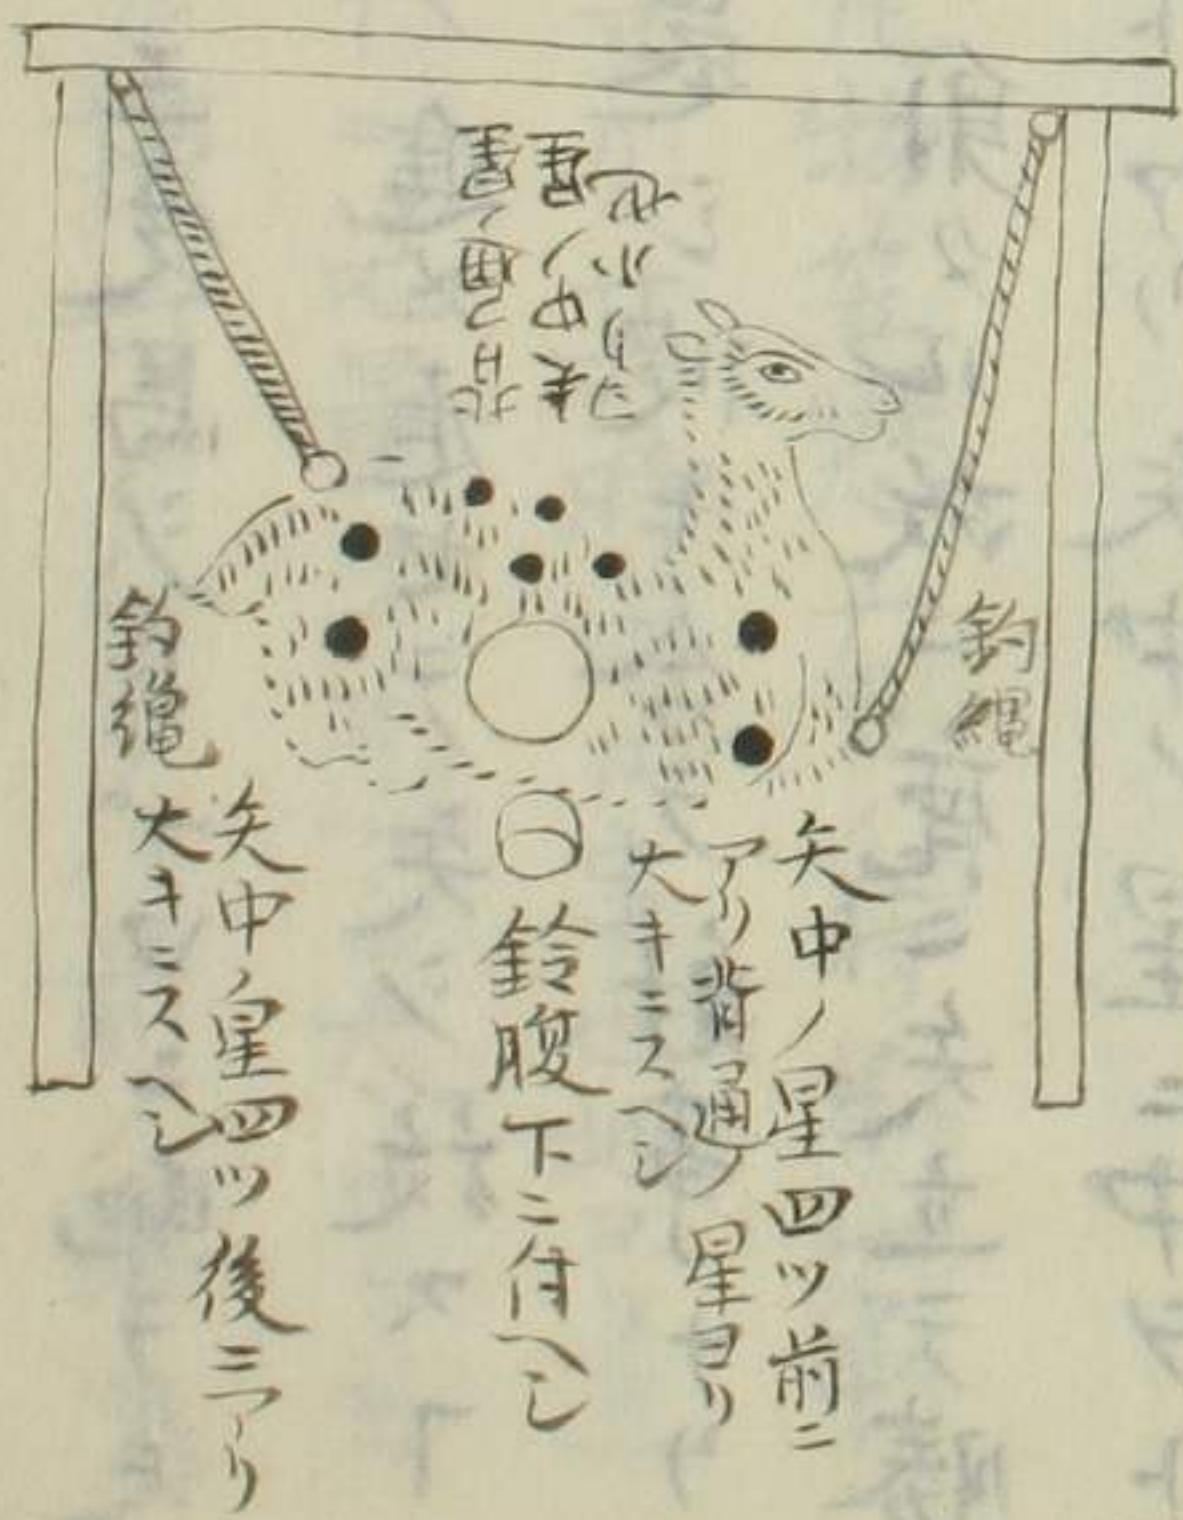 背通ノ星
矢中ノ星
ヨリ小也
釣縄
釣縄
矢中ノ星四ツ前ニ
アリ背通ノ星ヨリ
大キニスヘシ
鈴腹下ニ付ヘシ
矢中ノ星四ツ後ニアリ
大キニスヘシ